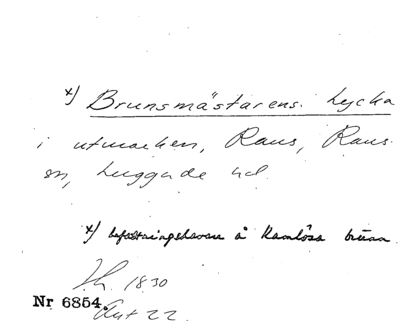 x) Brunsmästarens lycka
i utmarken, Raus, Raus
sn, Luggude hd
x) befattningshavare å Ramlösa brunn
Lh. 1830
Akt 22
Nr 6854.